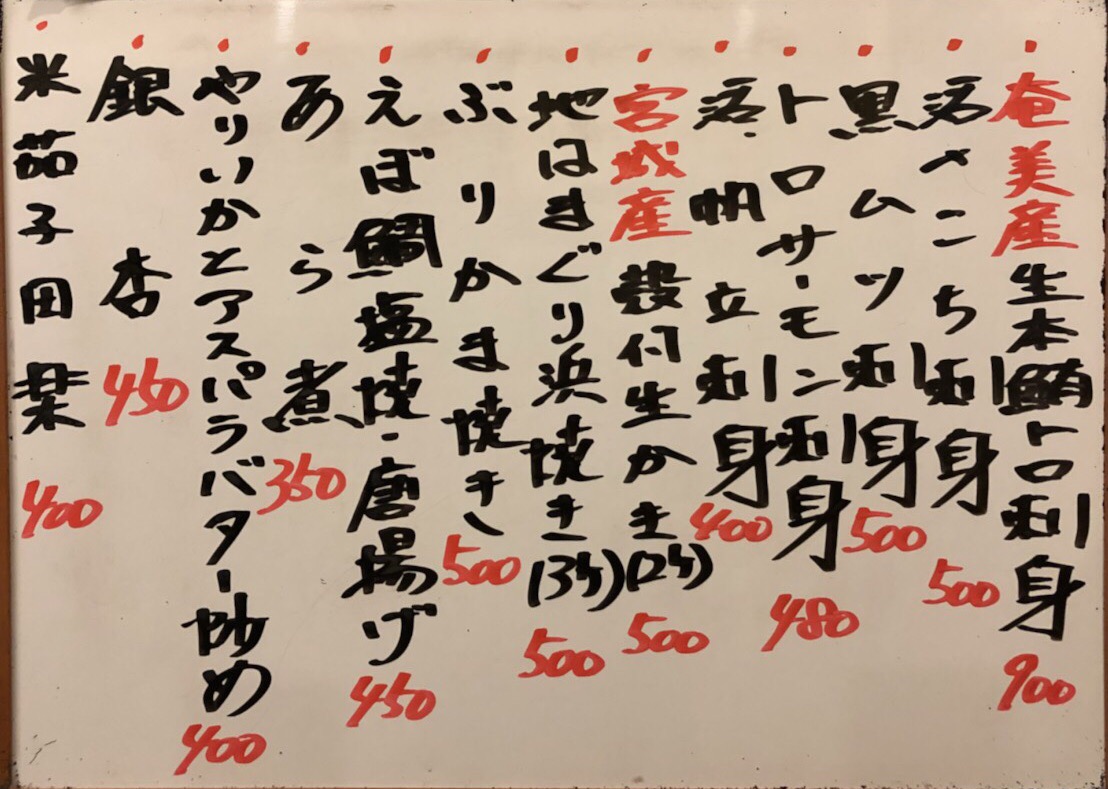 奄美産生本鮪トロ刺身 900
活〆こち刺身 500
黒ムツ刺身 500
トロサーモン刺身 480
活帆立刺身 400
宮城産殻付生かき(2ケ) 500
地はまぐり浜焼き(3ケ) 500
ぶりかま焼き 500
えぼ鯛塩焼・唐揚げ 450
あら煮 350
やりいかとアスパラバター炒め 400
銀杏 450
米茄子田楽 400